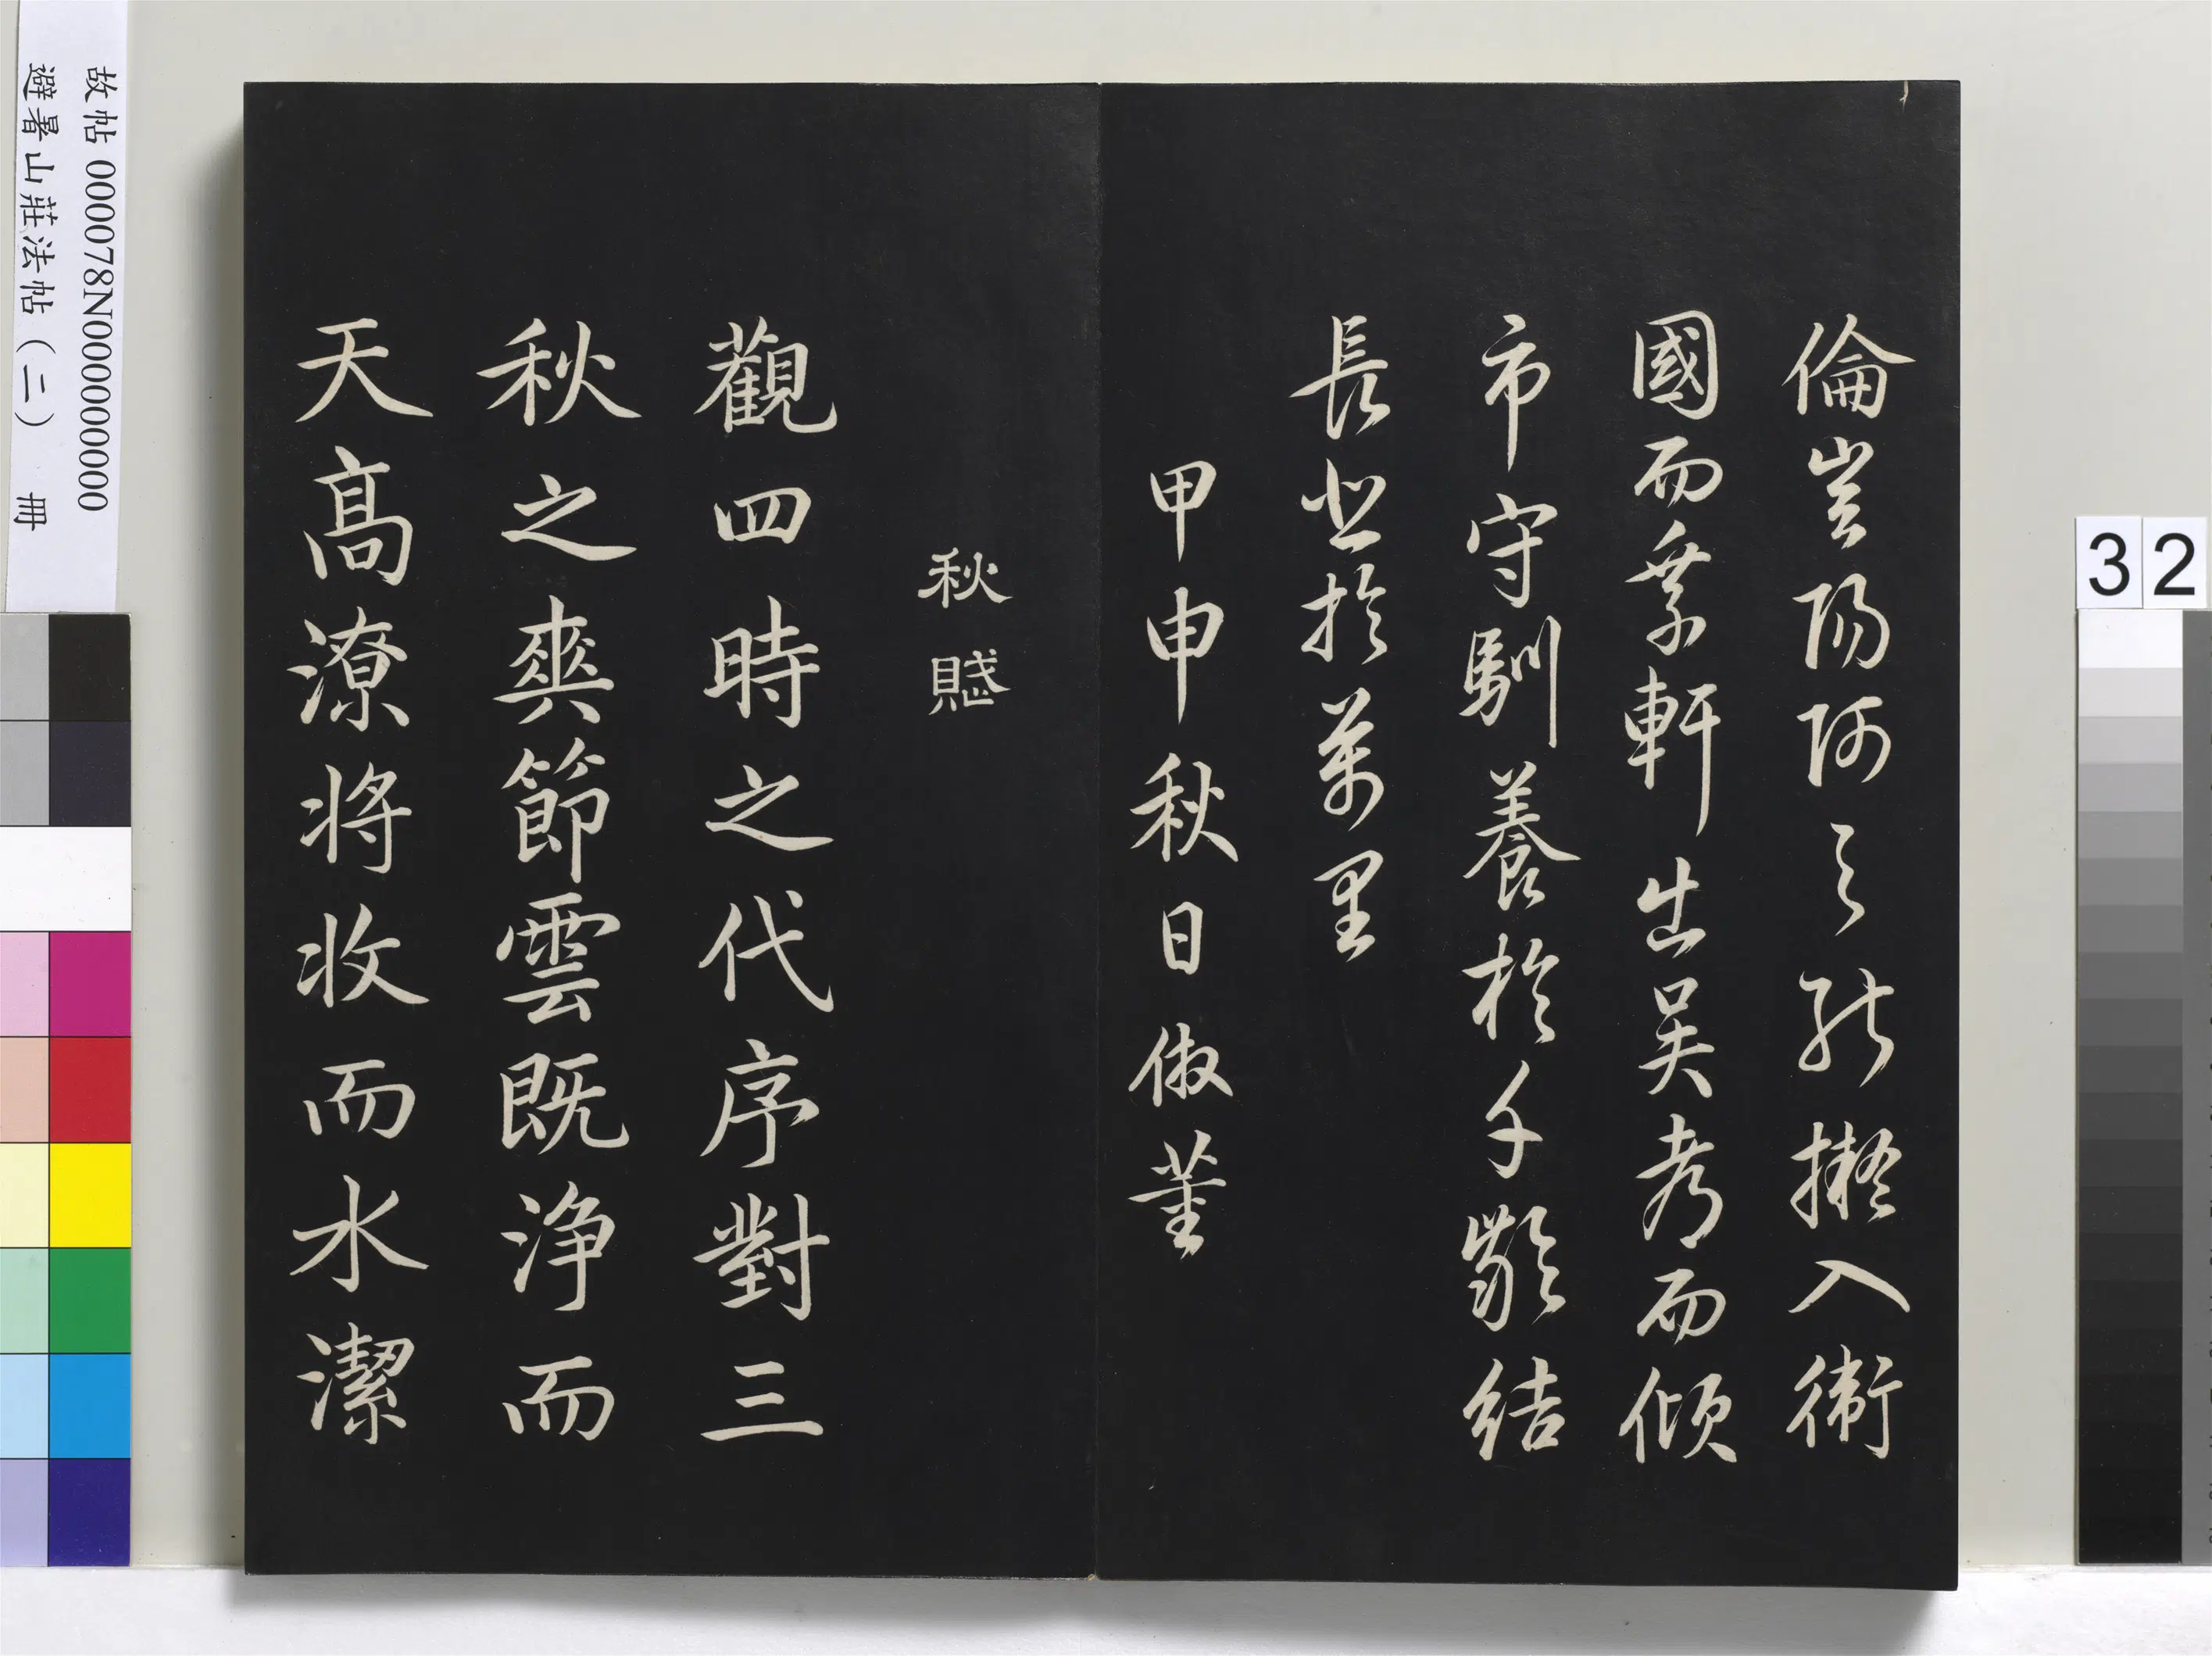 倫豈陽阿之能擬入衛
國而乘軒出吳都而傾
市守馴養於千齡結
長悲於萬里
甲申秋日倣董
秋賦
觀四時之代序對三
秋之爽節雲既浄而
天高潦将收而水潔
故帖 000078N000000000
避暑山莊法帖（二） 冊
32